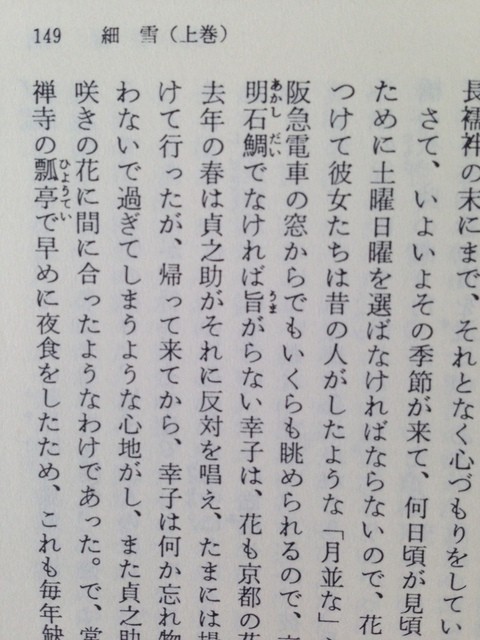 149 細 雪(上巻)
長襦袢の末にまで、それとなく心づもりをしてい
さて、いよいよその季節が来て、何日頃が見頃
ために土曜日曜を選ばなければならないので、花
つけて彼女たちは昔の人がしたような「月並な」
阪急電車の窓からでもいくらも眺められるので、
明石鯛でなければ旨がらない幸子は、花も京都の花
去年の春は貞之助がそれに反対を唱え、たまには
けて行ったが、帰って来てから、幸子は何か忘れ物
わないで過ぎてしまうような心地がし、また貞之助
咲きの花に間に合ったようなわけであった。で、常
禅寺の瓢亭で早めに夜食をしたため、これも毎年缺